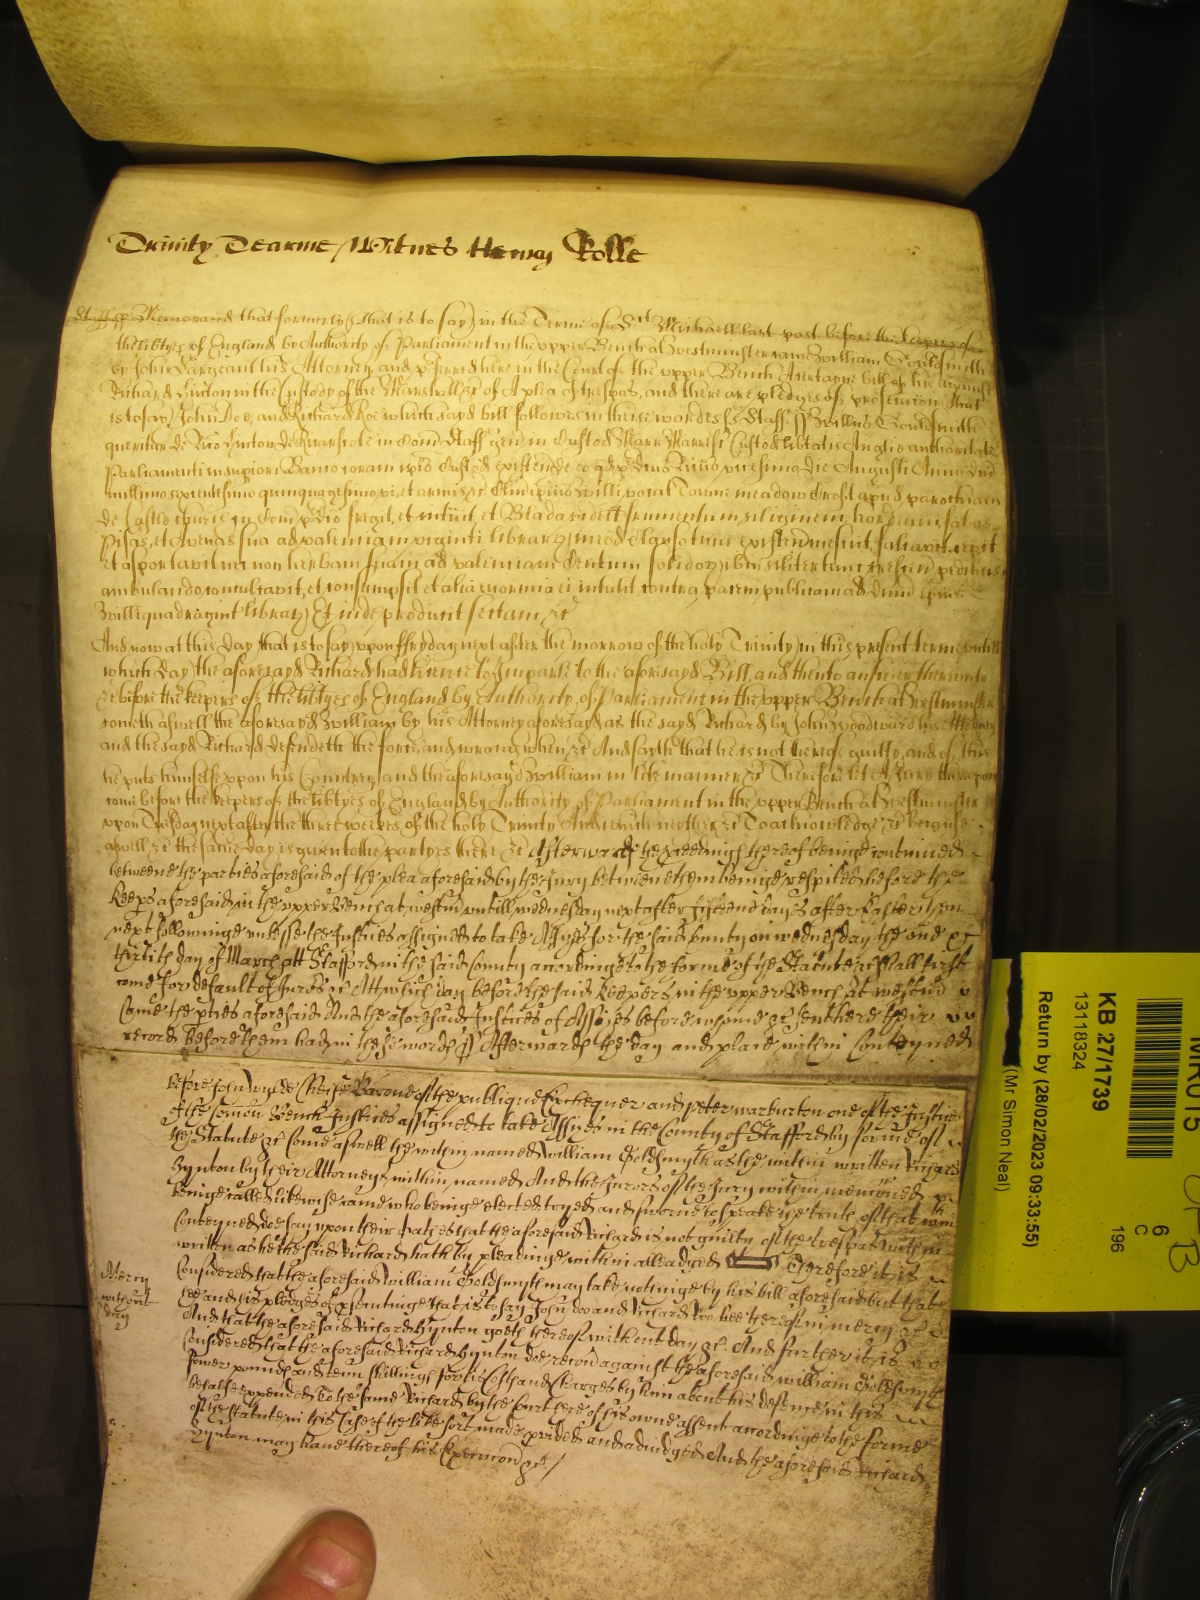 Trinity Tearme Witnes Henry Rolle
Staff ss Memorand that formerly (that is to say) in the Terme of St Michaell last past before the keepers of
the libtyes of England by Authority of Parliament in the upper Bench at Westminster came William Gouldsmith
by John Sargeant his Attorney and pferred here in the Court of the upper Bench A certayne bill of his against
Richard Lynton in the Custody of the Marshall &c of A plea of trespas, and there are pledges of prosecucion that
is to say) John Doe, and Richard Roe which sayd bill followes in these wordes ss Staff ss Willus Gouldsmith
queritur de Rico Lynton de in Com Staff gen in Custod Marr Marresc Custod libtatis Anglie authoritate
Parliamenti in supiori Banco coram ipis Custod existen de eo qd pdcus Ricus vicesimo die Augusti Anno Dni
millimo sexcentesimo quinquagesimo vi et armis &c Clm ipius Willi vocat Towne meadow Croft apud parochiam
de Castle Church in Com pdco fregit, et intuit, et Blada videlt frumentum, siliginem, hordeum, fabas
Pisas, et Avenas sua ad valenciam viginti librar messuit, falcavit, cepit
et asportavit nec non herbam suam ad valenciam Centum solidor ibm similiter tunc crescen pedibus
ambulando conculcavit, et consumpsit et alia enormia ei intulit contra pacem publicam ad dmnu ipius
Willi quadragint librar Et inde producit sectam &c
And now at this day that is to say upon ffryday next after the morrow of the holy Trinity in this present terme, untill
which day the aforesayd Richard had licence to Imparle to the aforesayd Bill, and then to answer thereunto
&c before the keepers of the libtyes of England by Authority of Parliament in the upper Bench at Westminster
cometh aswell the aforesayd William by his Attorney aforesayd as the sayd Richard by John Woodward his Attorney
and the sayd Richard defendeth the force, and wrong when &c And sayth that he is not thereof guilty, and of this
he puts himselfe upon his Countrey, and the aforesayd William in like manner &c Therefore let A Jury thereupon
come before the keepers of the libtyes of England by Authority of Parliament in the upper Bench at Westminster
upon Tuesday next after the three weekes of the holy Trinity And which neither &c To acknowledge &c because
aswell &c the same day is given to the partyes there &c Afterwards the proces thereof beinge continued
betweene the parties aforesaid of the plea aforesaid by the Jury betweene them beinge respited before the
Keeps aforesaid in the upper Bench at westm untill wednesday next after fifteene dayes after Easter then
next followinge unlesse the Justices assigned to take Assizes for the said County on wednesday the one &
thirtith day of March att Stafford in the said County accordinge to the forme of the Statute &c shall first
come for default of Jurors &c Att which day before the said Keepers in the upper Bench at westm
Came the pties aforesaid And the aforesaid Justices of Assizes before whome &c sent here their
record before them had in these words ss Afterwards the day and place within Conteyned
before John Wylde Cheife Barone of the publique Exchequer and Peter warburton one of the Justices
of the Comon Bench Justices assigned to take Assizes in the County of Stafford by forme of
the Statute &c Come aswell the within named William Goldsmyth as the within written Richard
Lynton by their Attorneys within named And the Jurors of the Jury within mencioned
beinge called likewise came who beinge elected tryed and sworne to speake the truth of that within
Conteyned doe say upon their oathes that the aforesaid Richard is not guilty of the trespas within
written as he the said Richard hath by pleadinge within alleadged Therefore it is
Considered that the aforesaid William Goldsmyth may take nothinge by his bill aforesaid but that
hee and his pledges of psecutinge that is to say John doo and Richard roo bee thereof in mercy &c
And that the aforesaid Richard Lynton goeth thereof without day &c. And further it is
Considered that the aforesaid Richard Lynton doe recover against the aforesaid william Goldsmyth
fower pounds and tenn shillings for his Costs and Charges by him about his defence in this
behalfe expended To the same Richard by the Court here of his owne assent accordinge to the forme
of the Statute in this Case of the like sort made pvided and adiudged And the aforesaid Richard
Lynton may have thereof his Execucon &c /
Mercy
without
day
KB 27/1739
13118324
Return by (28/02/2023 09:33:55)
(Mr Simon Neal)
6
C
196